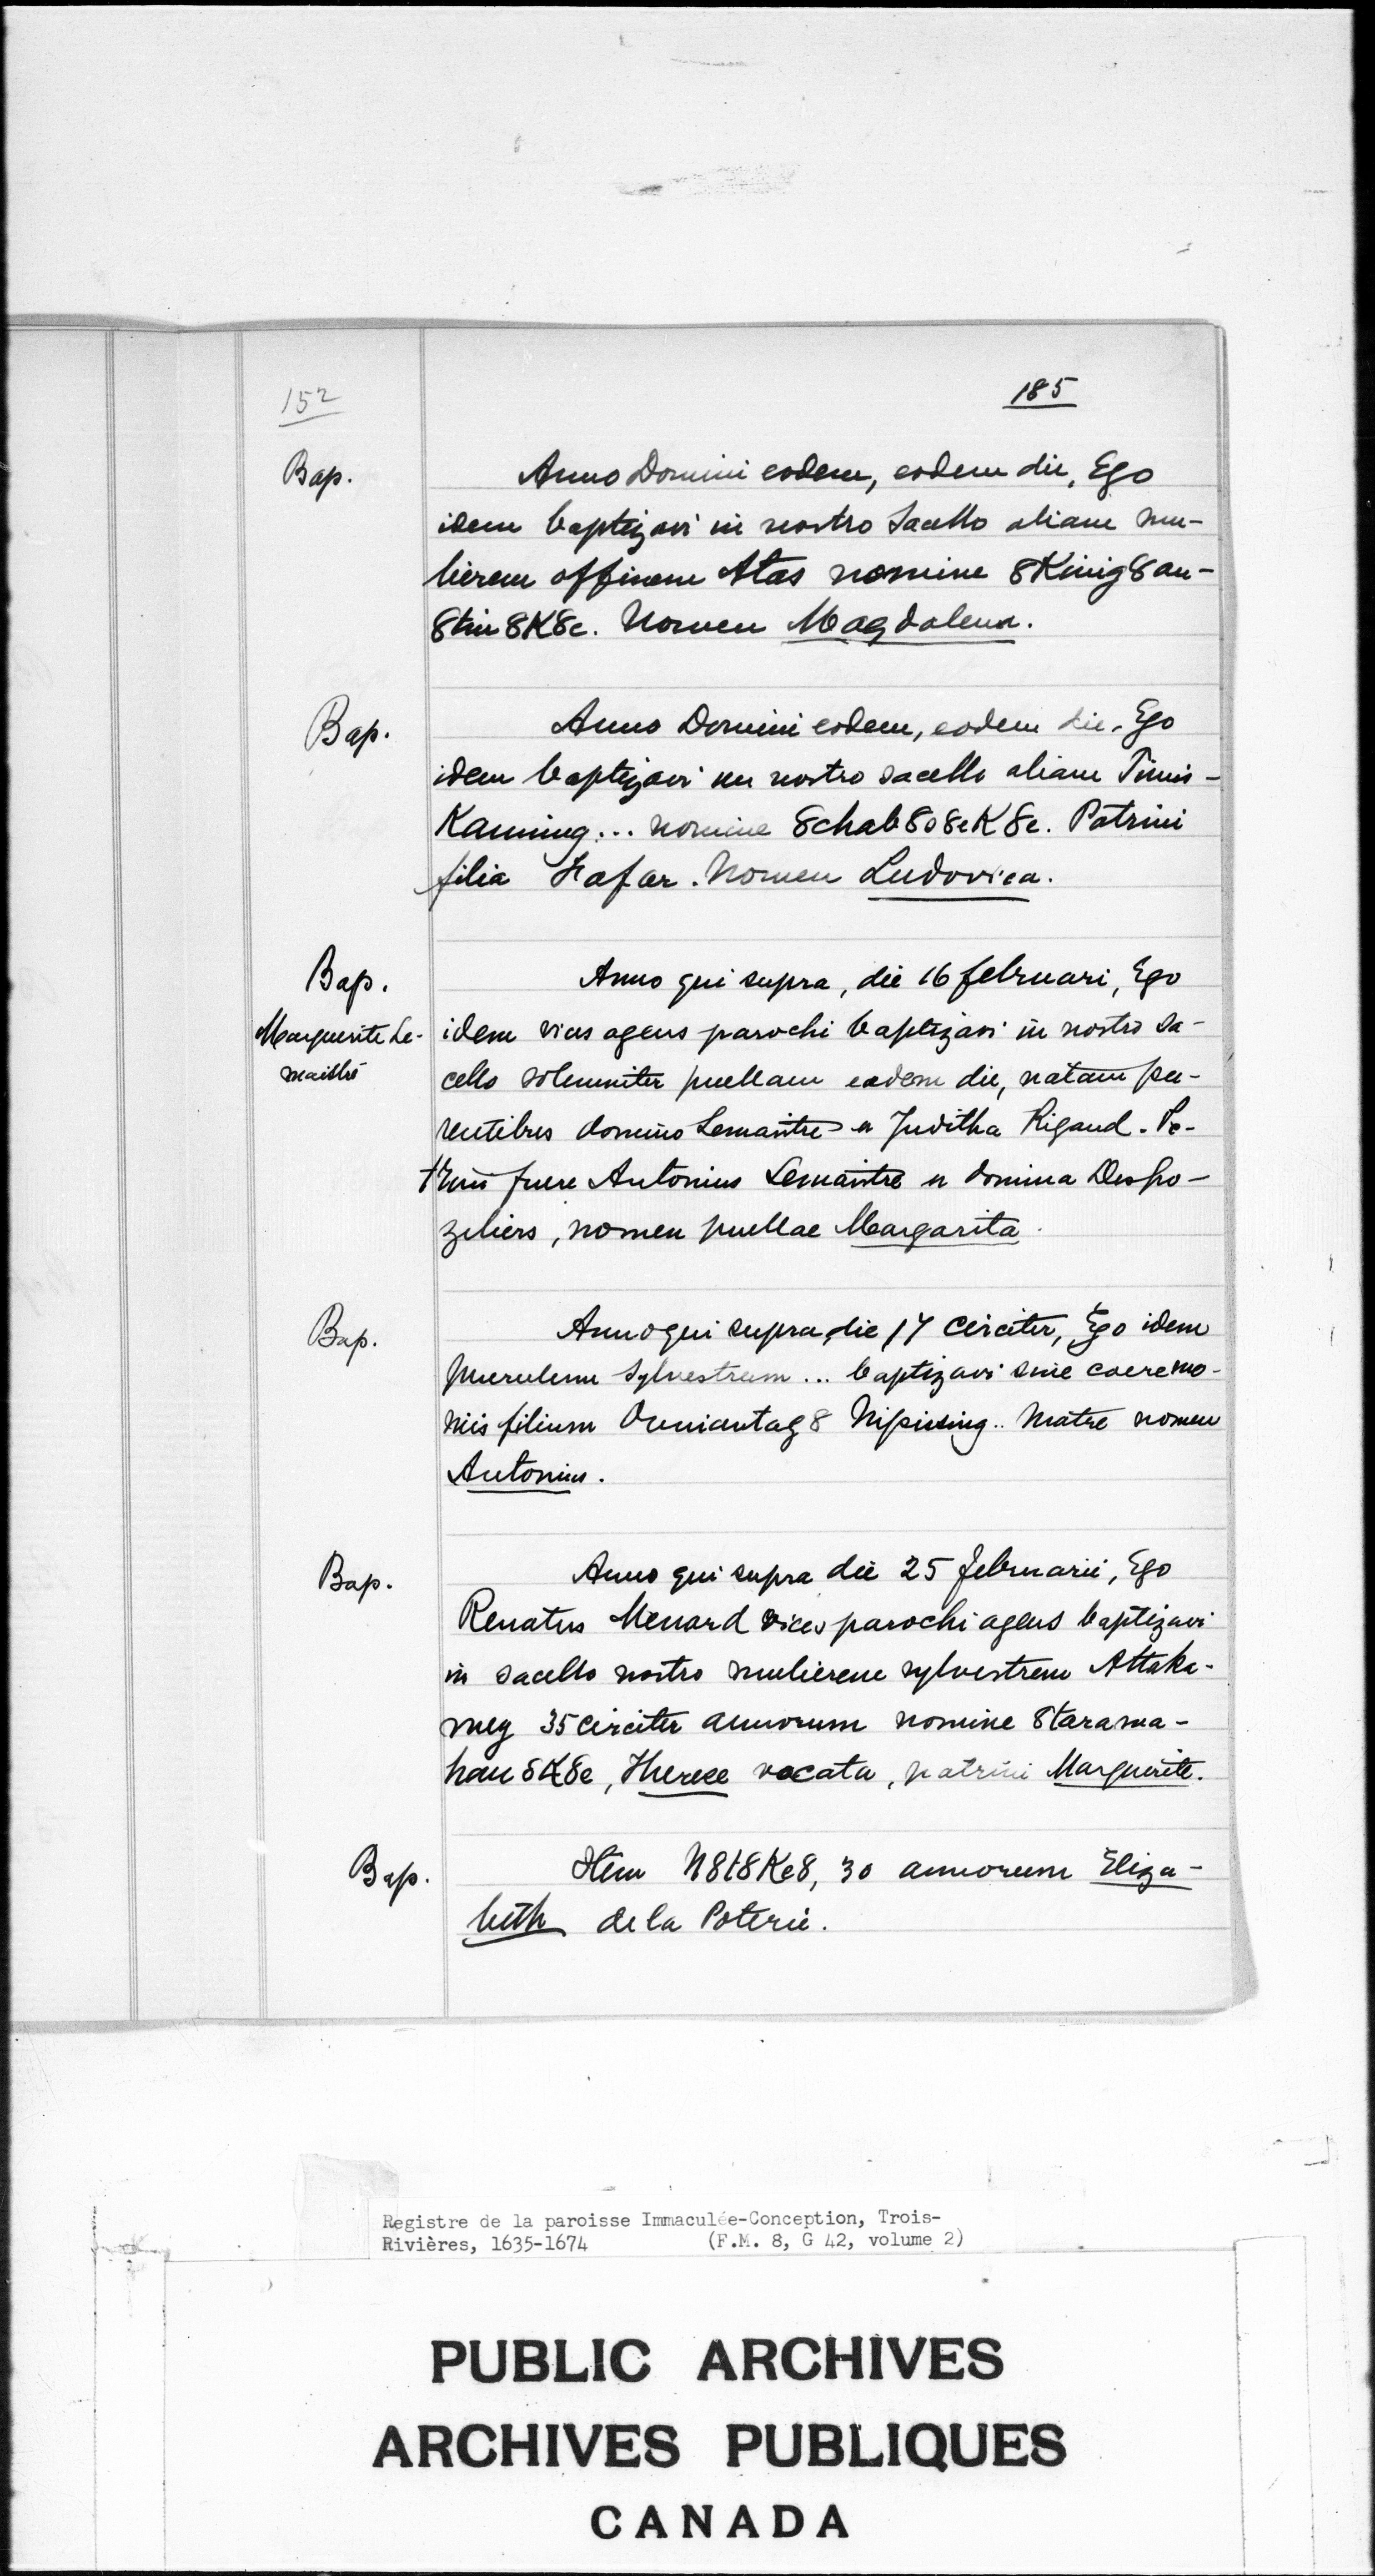 152
185
Bap.
Anno Domini eodem, eodem die, Ego
idem baptizavi in nostro Sacello aliam mu-
lierem affinem Atas nomine 8Kinig8an-
8tin8K8e. Nomen Magdalena.
Bap.
Anno Domini eodem, eodem die, Ego
idem baptizavi in nostro sacello aliam Timis-
Kaming... nomine 8chab8o8eK8e. Patrini
filia Hafar. Nomen Ludovica.
Bap.
Marguerite Le-
maistre
Anno qui supra, die 16 februari, Ego
idem vices agens parochi baptizavi in nostro sa-
cello solemniter puellam eadem die, natam pa-
rentibus domino Lemaitre et Juditha Rigaud. Pa-
trini fuere Antonius Lemaitre et domina Despo-
ziliers, nomen puellae Margarita.
Bap.
Anno qui supra, die 17 circiter, Ego idem
puerulum sylvestrem... baptizavi sine caeremo-
niis filium Ouniantag8 Nipissing.. matre nomen
Antonius.
Bap.
Anno qui supra die 25 februarii, Ego
Renatus Menard vices parochi agens baptizavi
in sacello nostro mulierem sylvestrem Attika-
meg 35 circiter annorum nomine 8tarama-
han8K8e, Therese vocata, patrini Marguerite.
Bap.
Item N8t8Ke8, 30 annorum Eliza-
beth de la Poterie.
Registre de la paroisse Immaculée-Conception, Trois-
Rivières, 1635-1674 (F.M. 8, G 42, volume 2)
PUBLIC ARCHIVES
ARCHIVES PUBLIQUES
CANADA